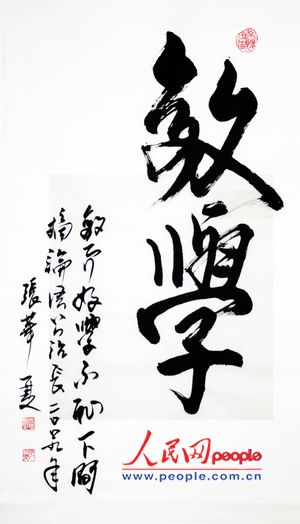 敏學
敏而好學不恥下問
摘論語公冶長二〇〇九年
張華夏
人民网 people
www.people.com.cn